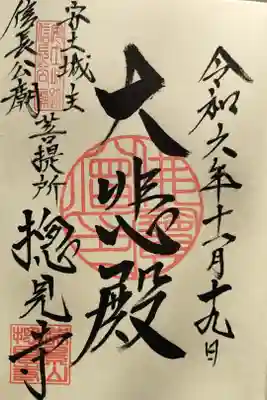 令和六年十一月十九日
大悲殿
安土城主
信長公廟
菩提所
摠見寺